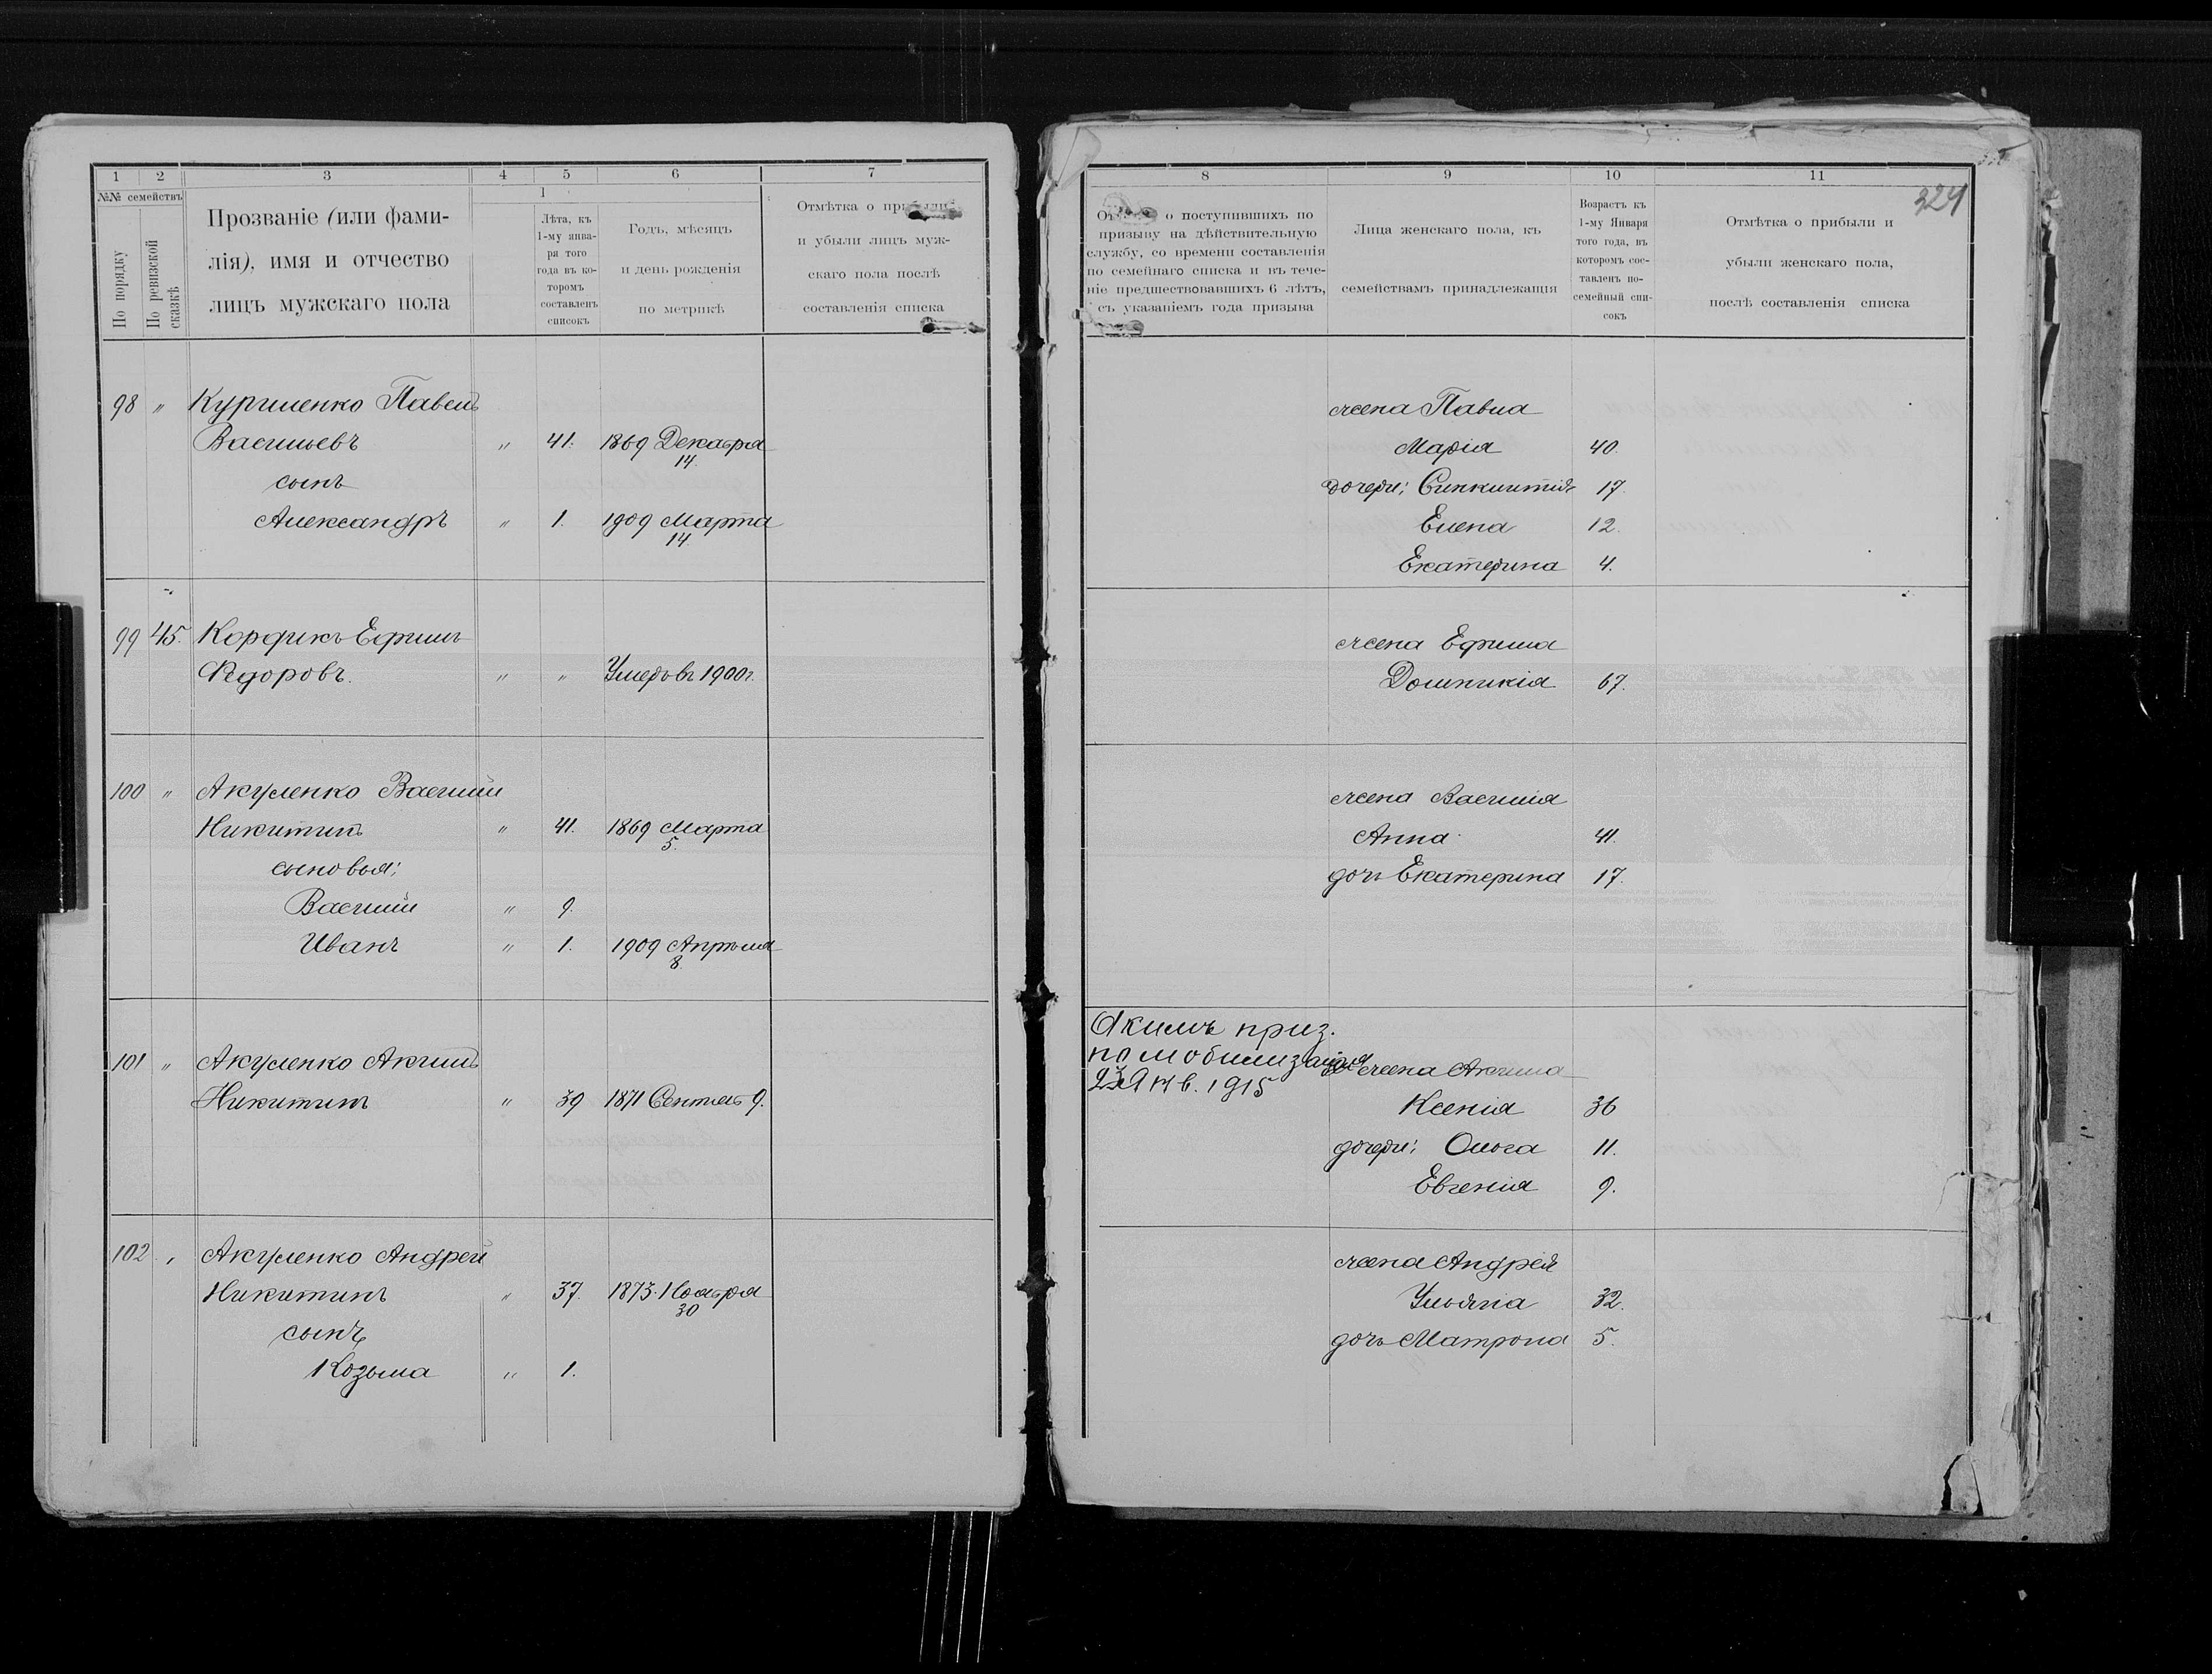 1 2 3 4 5 6 7
№№ семействъ
По порядку
По ревизской сказкѣ
Прозваніе (или фами-
лія), имя и отчество
лицъ мужскаго пола
1
Лѣта, къ
1-му янва-
ря того
года въ ко-
торомъ
составленъ
списокъ
Годъ, мѣсяцъ
и день рожденія
по метрикѣ
Отмѣтка о
и убыли лицъ муж-
скаго пола послѣ
составленія списка
98 " Куриленко Павелъ
Васильевъ " 41. 1869 Декабря
14.
сынъ
Александръ " 1. 1909 Марта
14.
99 45. Кордикъ Ефимъ
Ѳедоровъ. " " Умеръ въ 1900г.
100 " Акуленко Василій
Никитинъ " 41. 1869 Марта
5.
сыновья:
Василій " 9.
Иванъ " 1. 1909 Апрѣля
8.
101 " Акуленко Акимъ
Никитинъ " 39 1871 Сентяб 9.
102 " Акуленко Андрей
Никитинъ " 37. 1873 Ноября
30
сынъ
Козьма " 1.
8 9 10 11
324
о поступившихъ по
призыву на дѣйствительную
службу, со времени составленія
по семейнаго списка и въ тече-
ніе предшествовавшихъ 6 лѣтъ,
съ указаніемъ года призыва
Лица женскаго пола, къ
семействамъ принадлежащія
Возрастъ къ
1-му Января
того года, въ
которомъ сос-
тавленъ по-
семейный спи-
сокъ
Отмѣтка о прибыли и
убыли женскаго пола,
послѣ составленія списка
жена Павла
Марія 40.
дочери: Синклитія 17.
Елена 12.
Екатерина 4.
жена Ефима
Домникія 67.
жена Василія
Анна 41.
дочь Екатерина 17.
Акимъ приз.
по мобилизаціи
Янв. 1915
жена Акима
Ксенія 36
дочери: Ольга 11.
Евгенія 9.
жена Андрея
Ульяна 32.
дочь Матрона 5.